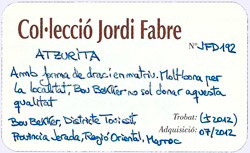 Col·lecció Jordi Fabre
Nº JFD192
ATZURITA
Amb forma de drac i en matriu. Molt bona per
la localitat, Bou Bekker no sol donar aquesta
qualitat
Bou Bekker, Districte Touissit Trobat: (±2012)
Província Jerada, Regió Oriental, Marroc Adquisició: 07/2012